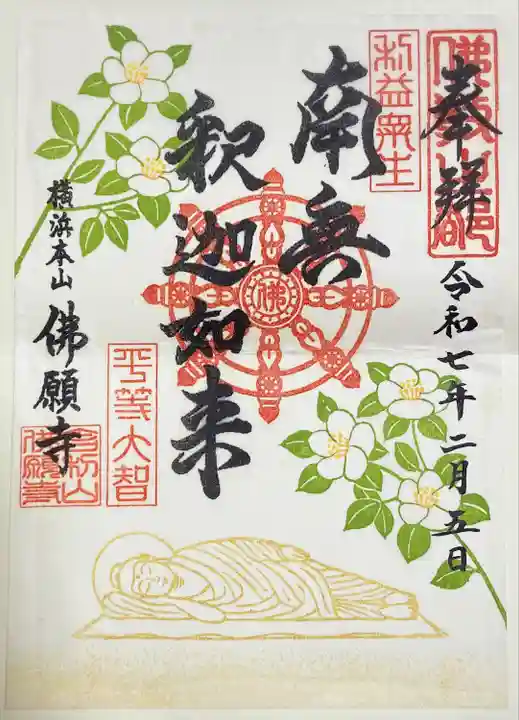 奉拝
令和七年二月五日
利益衆生
南無
釈迦如来
佛
平等大智
横浜本山
佛願寺